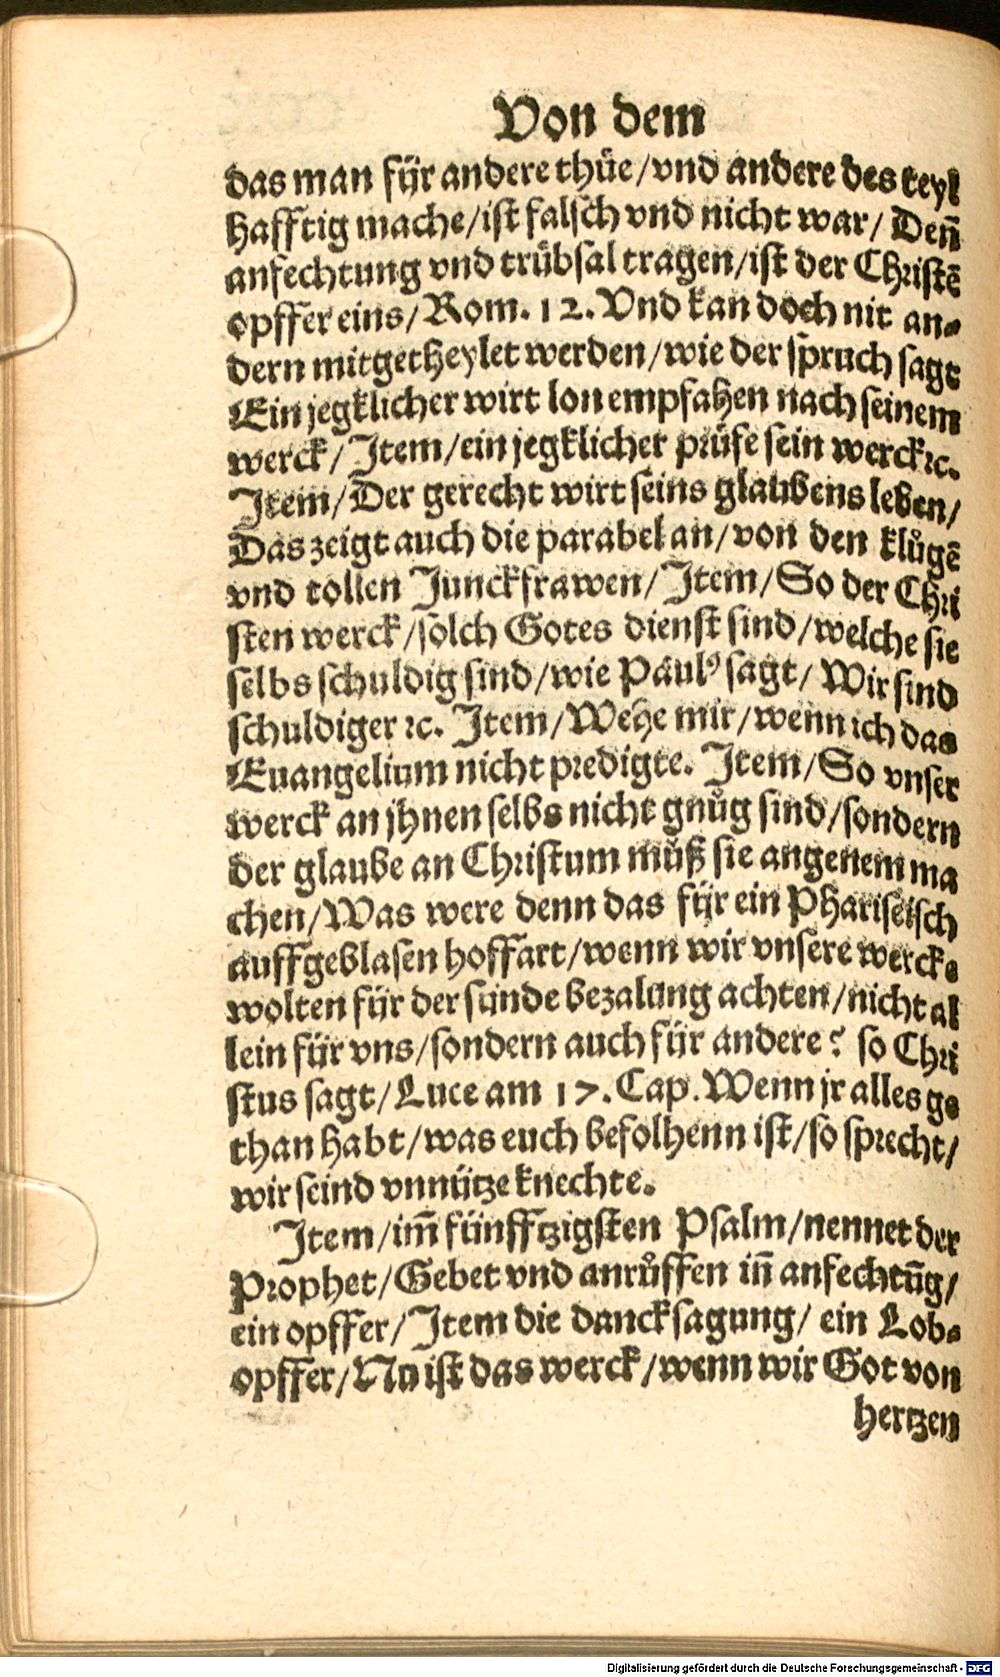 Von dem
das man fÿr andere thüe/vnd andere des teyl
hafftig mache/ist falsch vnd nicht war/ Deñ
anfechtung vnd trübsal tragen/ist der Christē
opffer eins/Rom. 12. Vnd kan doch nit an-
dern mitgetheylet werden/wie der spruch sagt
Ein jegklicher wirt lon empfahen nach seinem
werck/Item/ein jegklicher prüfe sein werck ꝛc.
Item/Der gerecht wirt seins glaubens leben/
Das zeigt auch die parabel an/von den klůgē
vnd tollen Junckfrawen/Item/So der Chri
sten werck/solch Gotes dienst sind/welche sie
selbs schuldig sind/wie Paulꝰ sagt/ Wir sind
schuldiger ꝛc. Item/Wehe mir/wenn ich das
Euangelium nicht predigte. Item/So vnser
werck an jhnen selbs nicht gnůg sind/sondern
der glaube an Christum můß sie angenem ma
chen/Was were denn das fÿr ein Phariseisch
auffgeblasen hoffart/wenn wir vnsere wercke
wolten fÿr der sünde bezalung achten/nicht al
lein fÿr vns/sondern auch fÿr andere? so Chri
stus sagt/Luce am 17. Cap. Wenn jr alles ge
than habt/was euch befolhenn ist/so sprecht/
wir seind vnnütze knechte.
Item/im̃ fünfftzigsten Psalm/nennet der
Prophet/Gebet vnd anrůffen iñ anfechtũg/
ein opffer/Item die dancksagung/ ein Lob-
opffer/Nu ist das werck/wenn wir Got von
hertzen
Digitalisierung gefördert durch die Deutsche Forschungsgemeinschaft - DFG